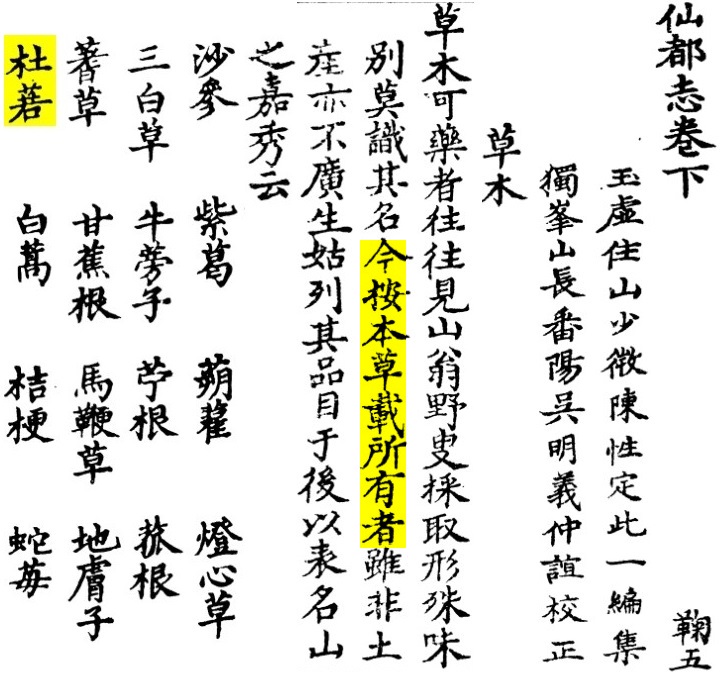 仙都志卷下
鞠五
玉虛住山少微陳性定此一編集
獨峯山長番陽吳明義仲誼校正
草木
草木可藥者往往見山翁野叟採取形殊味
別莫識其名今按本草載所有者雖非土
産亦不廣生姑列其品目于後以表名山
之嘉秀云
沙參 紫葛 蒴藋 燈心草
三白草 牛蒡子 苧根 菰根
蓍草 甘蕉根 馬鞭草 地膚子
杜若 白蒿 桔梗 蛇苺